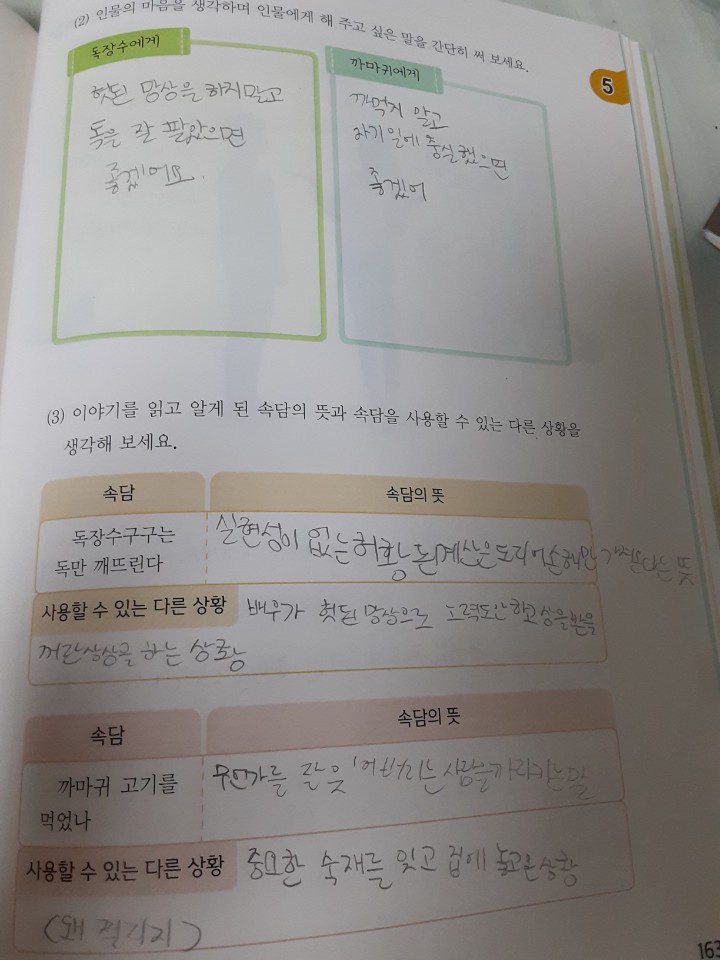 (2) 인물의 마음을 생각하며 인물에게 해 주고 싶은 말을 간단히 써 보세요.
독장수에게
헛된 망상을 하지말고
독을 잘 팔았으면
좋겠어요.
까마귀에게
까먹지 말고
자기일에 충실했으면
좋겠어
5
(3) 이야기를 읽고 알게 된 속담의 뜻과 속담을 사용할 수 있는 다른 상황을
생각해 보세요.
속담
속담의 뜻
독장수구구는
독만 깨뜨린다
실현성이 없는 허황된 계산은 도리어 손해만 가져온다는 뜻
사용할 수 있는 다른 상황
배우가 헛된 망상으로 노력도 안하고 상을 받을
꺼란 상상을 하는 상황
속담
속담의 뜻
까마귀 고기를
먹었나
무언가를 잘 잊어버리는 사람을 가리키는 말
사용할 수 있는 다른 상황
중요한 숙제를 잊고 집에 놓고온 상황
(왜 찔리지)
163